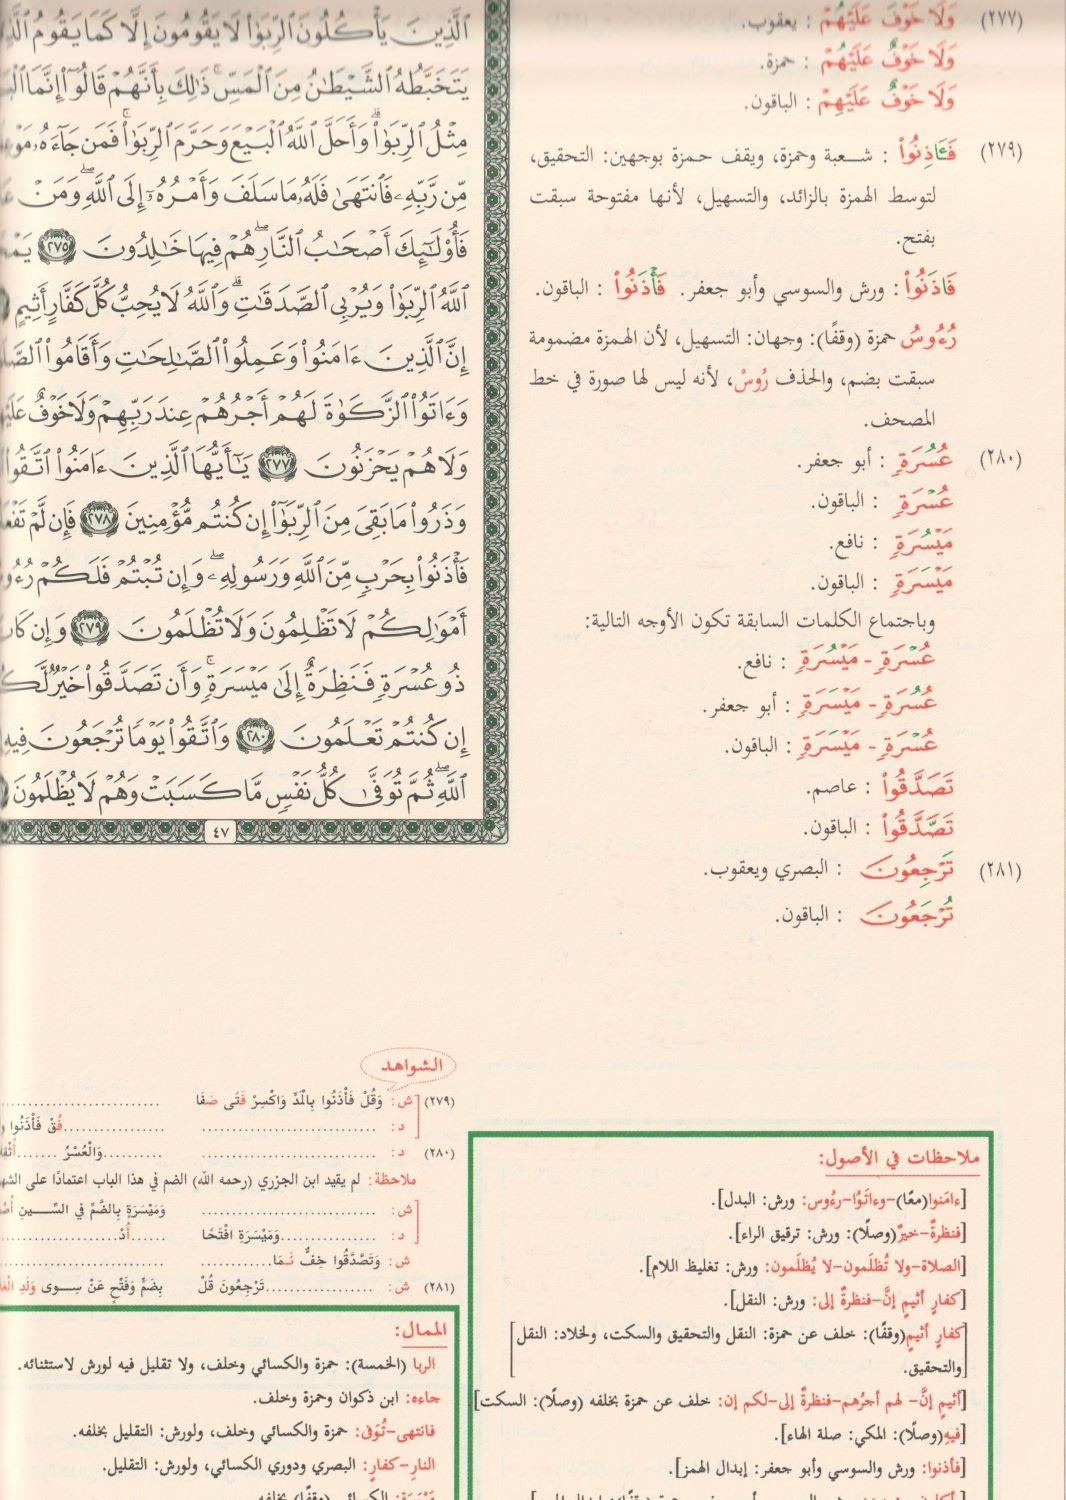 (٢٧٧) وَلَا خَوْفَ عَلَيْهُمْ : يعقوب.
وَلَا خَوْفٌ عَلَيْهُمْ : حمزة.
وَلَا خَوْفٌ عَلَيْهِمْ : الباقون.
(٢٧٩) فَـَٔاذِنُواْ : شعبة وحمزة، ويقف حمزة بوجهين: التحقيق،
لتوسط الهمزة بالزائد، والتسهيل، لأنها مفتوحة سبقت
بفتح.
فَاذَنُواْ : ورش والسوسي وأبو جعفر. فَأْذَنُواْ : الباقون.
رُءُوسُ حمزة (وقفًا): وجهان: التسهيل، لأن الهمزة مضمومة
سبقت بضم، والحذف رُوسْ، لأنه ليس لها صورة في خط
المصحف.
(٢٨٠) عُسُرَةٍ : أبو جعفر.
عُسْرَةٍ : الباقون.
مَيْسُرَةٍ : نافع.
مَيْسَرَةٍ : الباقون.
وباجتماع الكلمات السابقة تكون الأوجه التالية:
عُسْرَةٍ - مَيْسُرَةٍ : نافع.
عُسُرَةٍ - مَيْسَرَةٍ : أبو جعفر.
عُسْرَةٍ - مَيْسَرَةٍ : الباقون.
تَصَدَّقُواْ : عاصم.
تَصَّدَّقُواْ : الباقون.
(٢٨١) تَرْجِعُونَ : البصري ويعقوب.
تُرْجَعُونَ : الباقون.
ٱلَّذِينَ يَأْكُلُونَ ٱلرِّبَوٰاْ لَا يَقُومُونَ إِلَّا كَمَا يَقُومُ
يَتَخَبَّطُهُ ٱلشَّيْطَٰنُ مِنَ ٱلْمَسِّ ۚ ذَٰلِكَ بِأَنَّهُمْ قَالُوٓاْ إِنَّمَا
مِثْلُ ٱلرِّبَوٰاْ ۗ وَأَحَلَّ ٱللَّهُ ٱلْبَيْعَ وَحَرَّمَ ٱلرِّبَوٰاْ ۚ فَمَن جَآءَهُۥ
مِّن رَّبِّهِۦ فَٱنتَهَىٰ فَلَهُۥ مَا سَلَفَ وَأَمْرُهُۥٓ إِلَى ٱللَّهِ ۖ وَمَنْ
فَأُوْلَٰٓئِكَ أَصْحَٰبُ ٱلنَّارِ ۖ هُمْ فِيهَا خَٰلِدُونَ ٢٧٥
ٱللَّهُ ٱلرِّبَوٰاْ وَيُرْبِي ٱلصَّدَقَٰتِ ۗ وَٱللَّهُ لَا يُحِبُّ كُلَّ كَفَّارٍ أَثِيمٍ
إِنَّ ٱلَّذِينَ ءَامَنُواْ وَعَمِلُواْ ٱلصَّٰلِحَٰتِ وَأَقَامُواْ
وَءَاتَوُاْ ٱلزَّكَوٰةَ لَهُمْ أَجْرُهُمْ عِندَ رَبِّهِمْ وَلَا خَوْفٌ
وَلَا هُمْ يَحْزَنُونَ ٢٧٧ يَٰٓأَيُّهَا ٱلَّذِينَ ءَامَنُواْ ٱتَّقُواْ
وَذَرُواْ مَا بَقِيَ مِنَ ٱلرِّبَوٰٓاْ إِن كُنتُم مُّؤْمِنِينَ ٢٧٨ فَإِن لَّمْ
فَأْذَنُواْ بِحَرْبٍ مِّنَ ٱللَّهِ وَرَسُولِهِۦ ۖ وَإِن تُبْتُمْ فَلَكُمْ
أَمْوَٰلِكُمْ لَا تَظْلِمُونَ وَلَا تُظْلَمُونَ ٢٧٩ وَإِن
ذُو عُسْرَةٍ فَنَظِرَةٌ إِلَىٰ مَيْسَرَةٍ ۚ وَأَن تَصَدَّقُواْ خَيْرٌ
إِن كُنتُمْ تَعْلَمُونَ ٢٨٠ وَٱتَّقُواْ يَوْمًا تُرْجَعُونَ فِيهِ
ٱللَّهِ ۖ ثُمَّ تُوَفَّىٰ كُلُّ نَفْسٍ مَّا كَسَبَتْ وَهُمْ لَا يُظْلَمُونَ
٤٧
ملاحظات في الأصول:
[ءامَنوا(معًا)-وءاتَوُا-رءُوس: ورش: البدل].
[فنظرةٌ-خيرٌ(وصلًا): ورش: ترقيق الراء].
[الصلاة-ولا تُظلَمون-لا يُظلَمون: ورش: تغليظ اللام].
[كفارٍ أثيمٍ إنَّ-فنظرةٌ إلى: ورش: النقل].
[كفارٍ أثيمٍ(وقفًا): خلف عن حمزة: النقل والتحقيق والسكت، ولخلاد: النقل
والتحقيق.]
[أثيمٍ إنَّ- لهم أجرُهم-فنظرةٌ إلى-لكم إن: خلف عن حمزة بخلفه (وصلًا): السكت].
[فيهِ(وصلًا): المكي: صلة الهاء].
[فأذنوا: ورش والسوسي وأبو جعفر: إبدال الهمز].
الشواهد
(٢٧٩) ش: وَقُلْ فَأْذَنُوا بِالْمَدِّ وَاكْسِرْ فَتًى صَفَا ....................
د: .................... ....................فُقْ فَأْذَنُوا
(٢٨٠) د: .................... ..........وَالْعُسْرُ .......
ملاحظة: لم يقيد ابن الجزري (رحمه الله) الضم في هذا الباب اعتمادًا على
ش: .................... وَمَيْسَرَةٍ بِالضَّمِّ فِي السِّينِ
د: ............وَمَيْسَرَةِ افْتَحًا ......أُدْ....................
ش: وَتَصَّدَّقُوا خِفٌّ نَـمَا............ ....................
(٢٨١) ش: ..................تَرْجِعُونَ قُلْ بِضَمٍّ وَفَتْحٍ عَنْ سِوى وَلَدِ
الممال:
الربا (الخمسة): حمزة والكسائي وخلف، ولا تقليل فيه لورش لاستثنائه.
جاءه: ابن ذكوان وحمزة وخلف.
فانتهى-تُوَفى: حمزة والكسائي وخلف، ولورش: التقليل بخلفه.
النارِ-كفارٍ: البصري ودوري الكسائي، ولورش: التقليل.